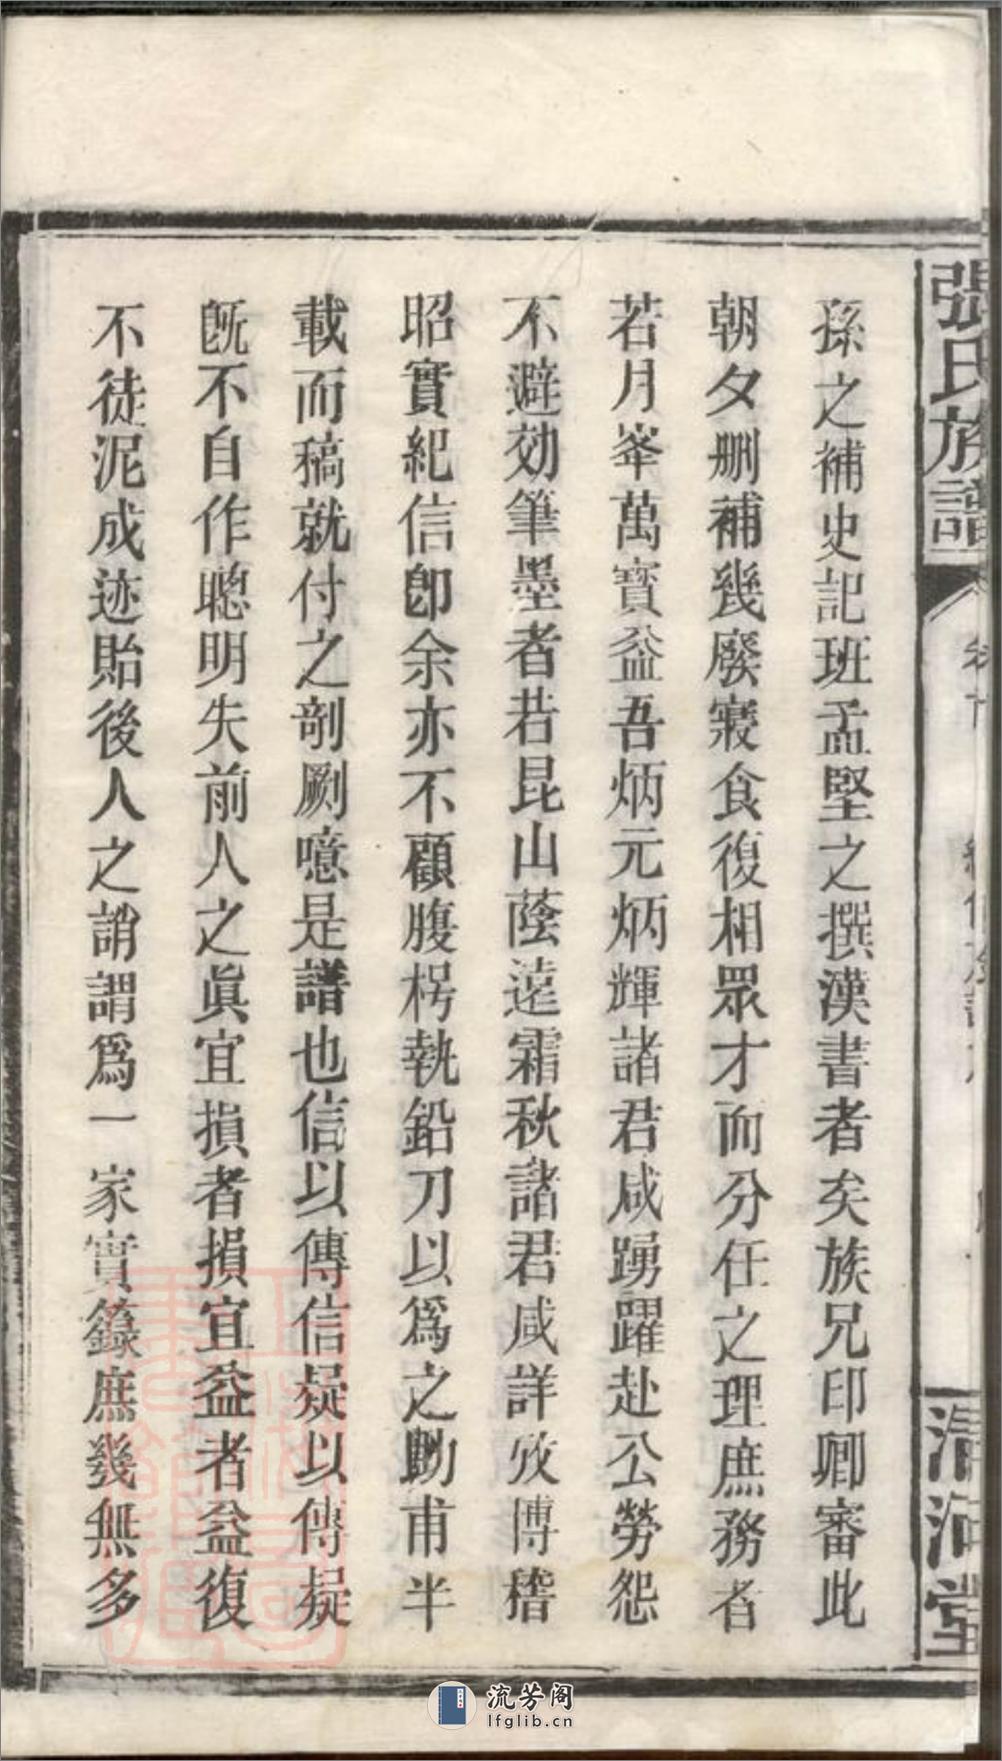 張氏族譜
清河堂
孫之補史記班孟堅之撰漢書者矣族兄印卿審此
朝夕刪補幾廢寢食復相眾才而分任之理庶務者
若月峯萬寶益吾炳元炳輝諸君咸踴躍赴公勞怨
不避効筆墨者若昆山蔭遠霜秋諸君咸詳攷博稽
昭實紀信卽余亦不顧腹枵執鉛刀以爲之助甫半
載而稿就付之剞劂噫是譜也信以傳信疑以傳疑
旣不自作聰明失前人之眞宜損者損宜益者益復
不徒泥成迹貽後人之誚謂爲一家實錄庶幾無多
流芳阁
lfglib.cn